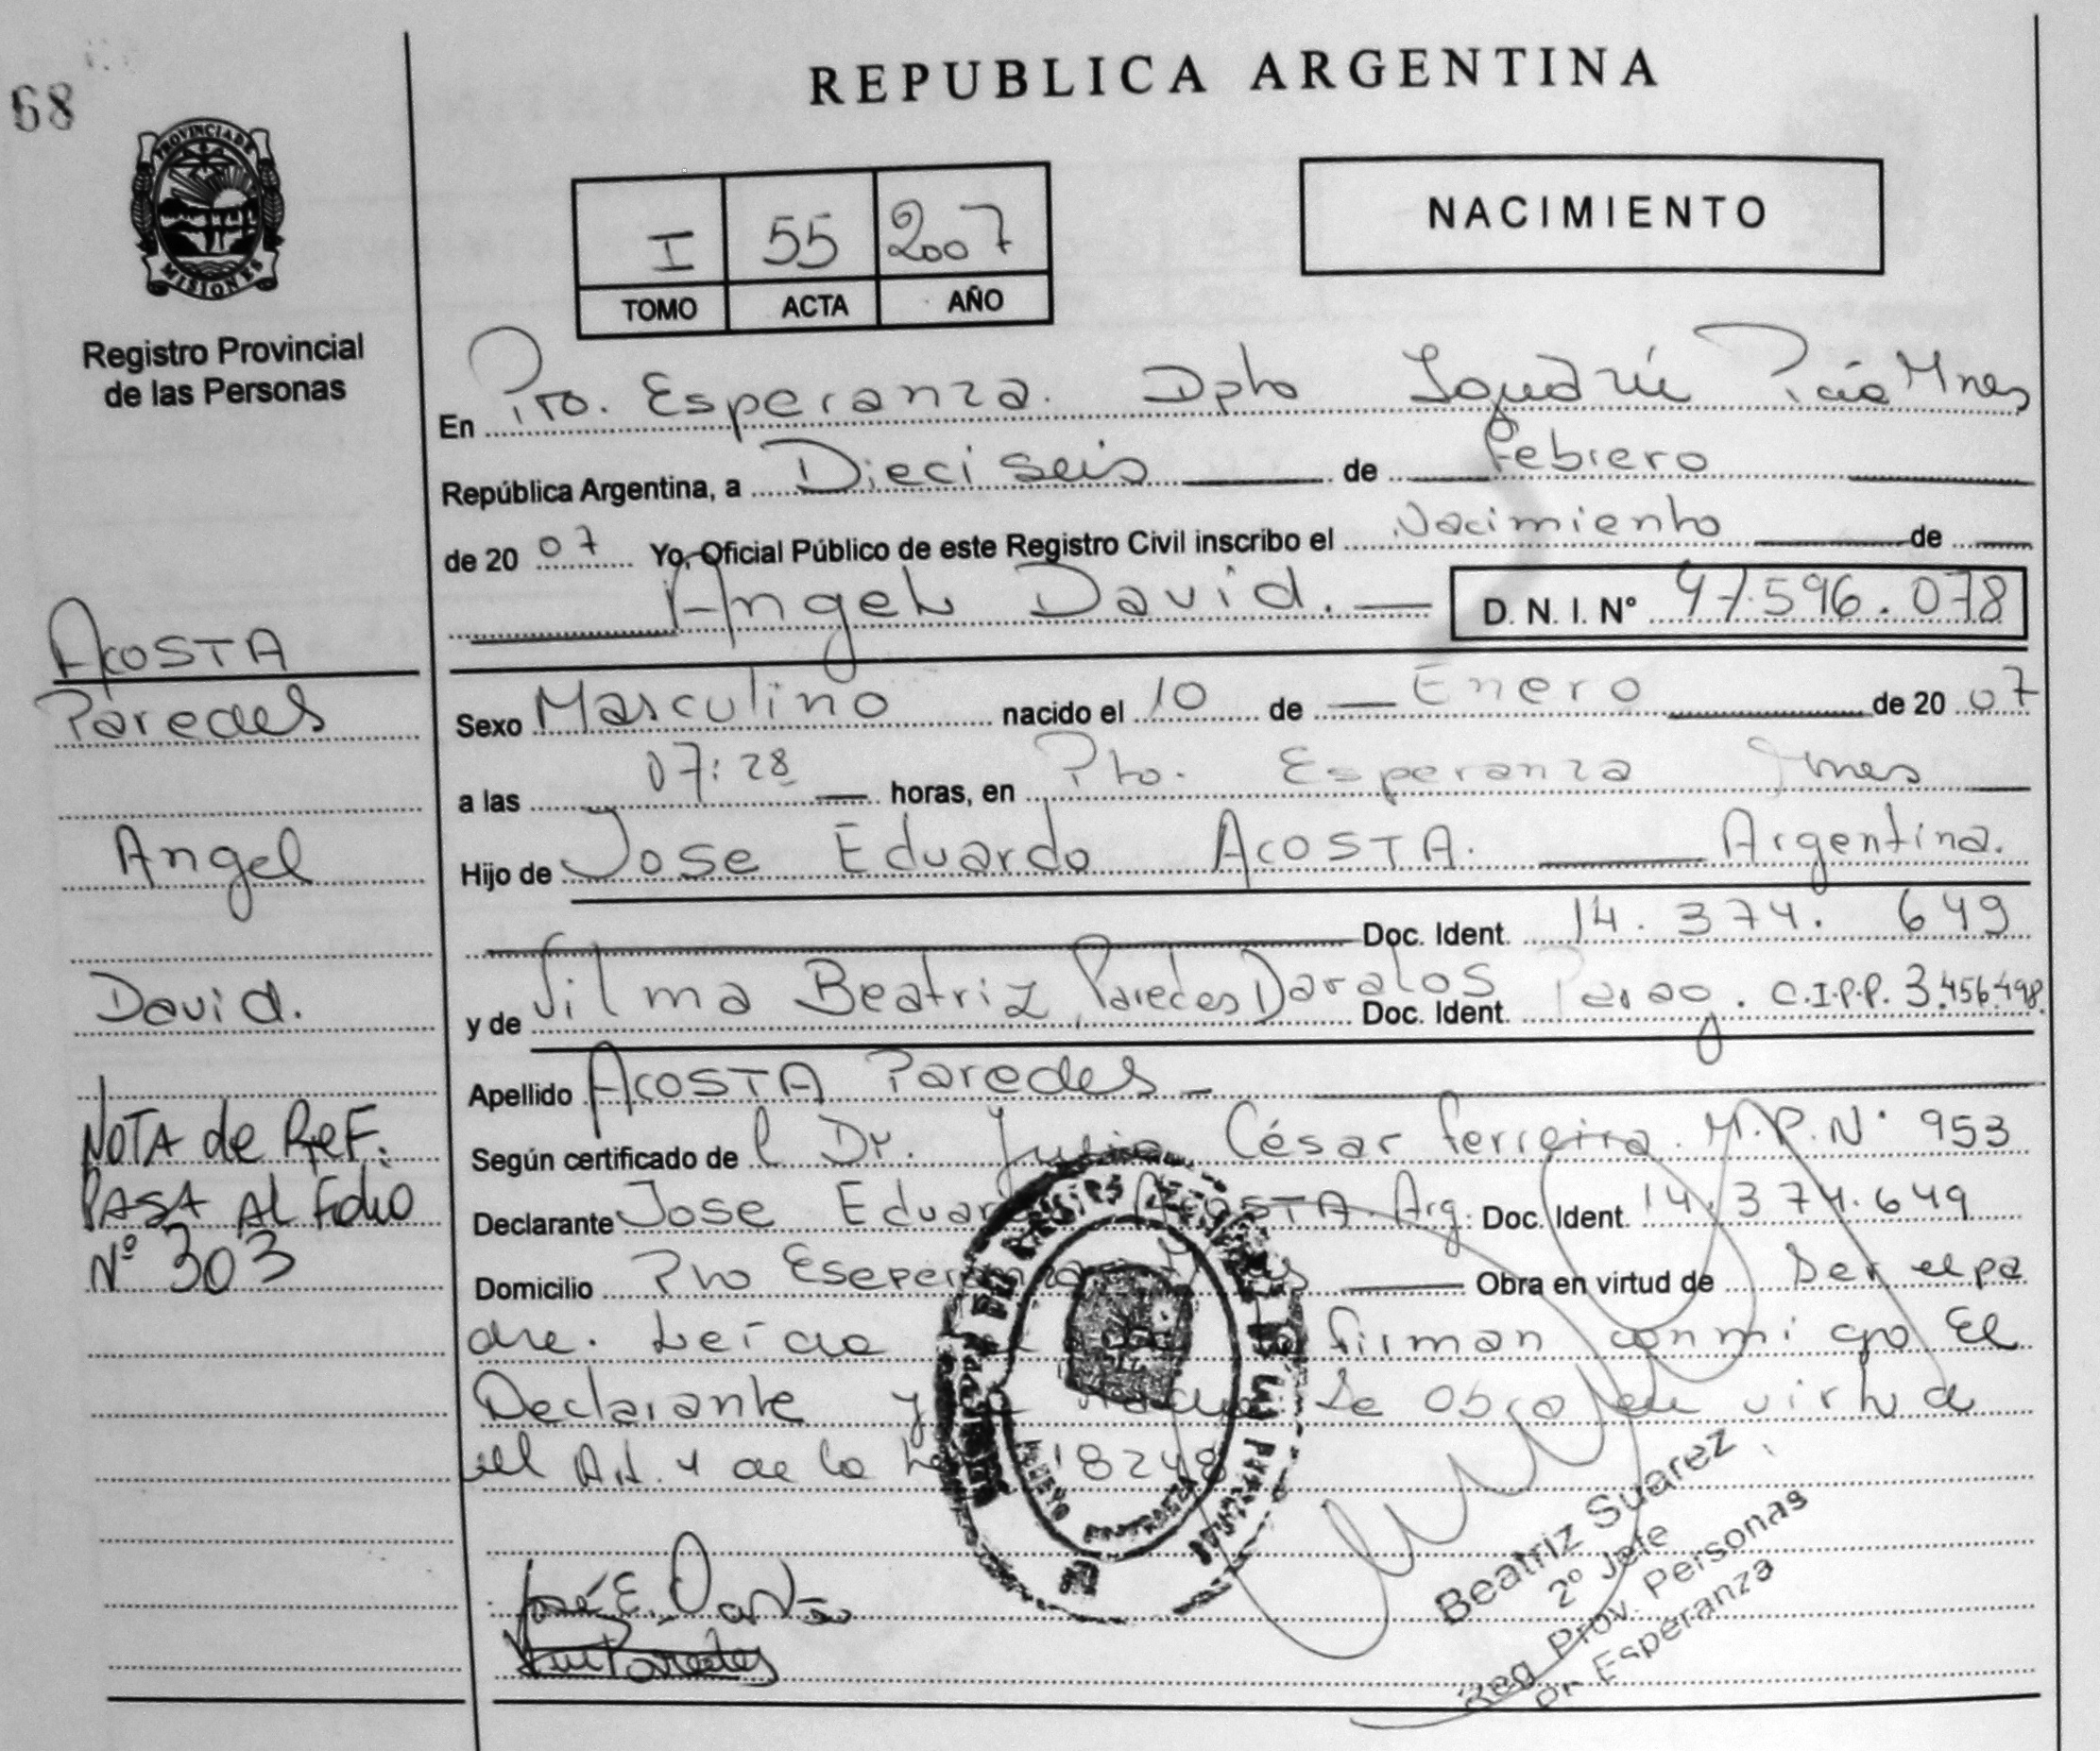 68
REPUBLICA ARGENTINA
PROVINCIA DE
MISIONES
Registro Provincial
de las Personas
I 55 2007
TOMO ACTA AÑO
NACIMIENTO
En Pto. Esperanza. Dpto Iguazú Pcia Mnes
República Argentina, a Dieciseis de Febrero
de 20 07 Yo, Oficial Público de este Registro Civil inscribo el Nacimiento de
Angel David. D. N. I. N° 47.596.078
Sexo Masculino nacido el 10 de Enero de 20 07
a las 07:28 horas, en Pto. Esperanza Mnes
Hijo de Jose Eduardo ACOSTA. Argentina.
Doc. Ident. 14. 374. 649
y de Vilma Beatriz Paredes Davalos Doc. Ident. Parag. C.I.P.P. 3.456.498
Apellido ACOSTA Paredes
Según certificado de l Dr. Julio César Ferreira M.P. N° 953
Declarante Jose Eduardo ACOSTA Arg. Doc. Ident. 14.374.649
Domicilio Pto Eseperanza Obra en virtud de Ser el pa
dre. Leída firman conmigo El
Declarante y la Madre Se Obra en virtud
del Art. 4 de la Ley 18248
ACOSTA
Paredes
Angel
David.
NOTA de REF:
PASA AL Folio
N° 303
PUERTO ESPERANZA
José E. Acosta
Paredes
Beatriz Suarez
2° Jefe
Reg. Prov. Personas
Esperanza